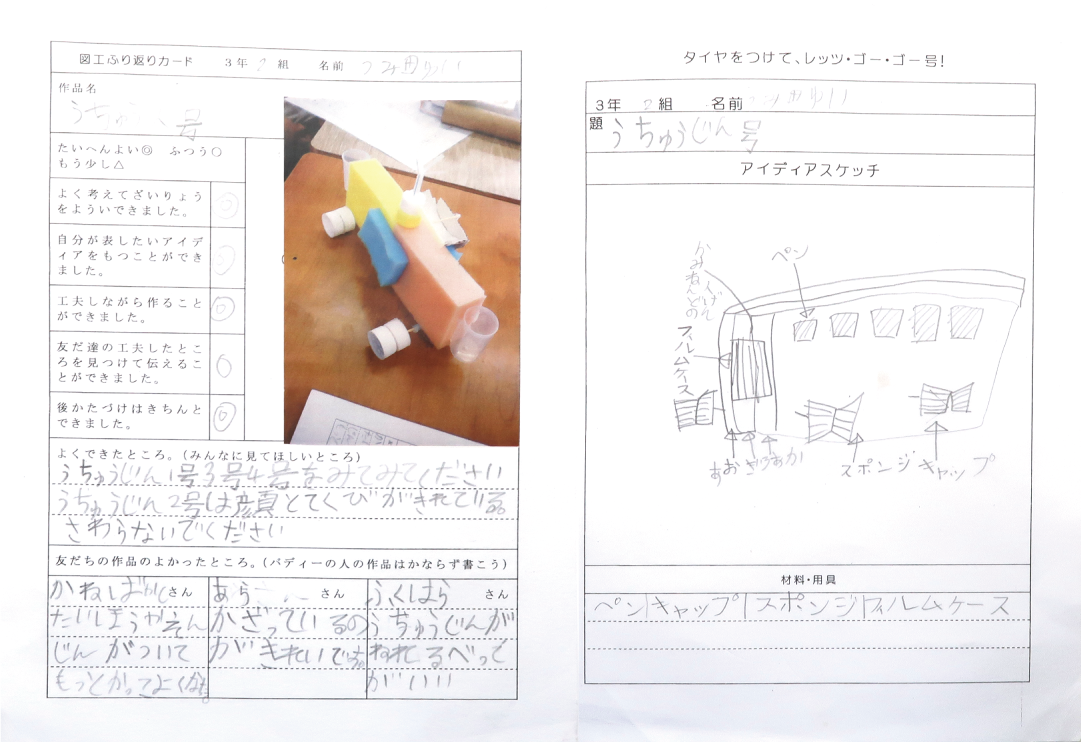 図工ふり返りカード 3年 2 組 名前
作品名
うちゅう 号
たいへんよい◎ ふつう○
もう少し△
よく考えてざいりょう
をよういできました。
自分が表したいアイデ
ィアをもつことができ
ました。
工夫しながら作ること
ができました。
友だ達の工夫したとこ
ろを見つけて伝えるこ
とができました。
後かたづけはきちんと
できました。
よくできたところ。(みんなに見てほしいところ)
うちゅうじん1号3号4号をみてみてください
うちゅうじん2号は顔とてくびがきれている
さわらないでください
友だちの作品のよかったところ。(バディーの人の作品はかならず書こう)
かねしば さん
たいほうやえん
じんがついて
もっとかってよくなる。
あら さん
かざっているの
がきれいです。
ふくはら さん
うちゅうじんが
ねれてるべっど
がいい
タイヤをつけて、レッツ・ゴー・ゴー号!
3年 2 組 名前
題 うちゅうじん号
アイディアスケッチ
かみねんどの
フィルムケース
ペン
あお
あか
スポンジ
キャップ
材料・用具
ペン キャップ スポンジ フィルムケース